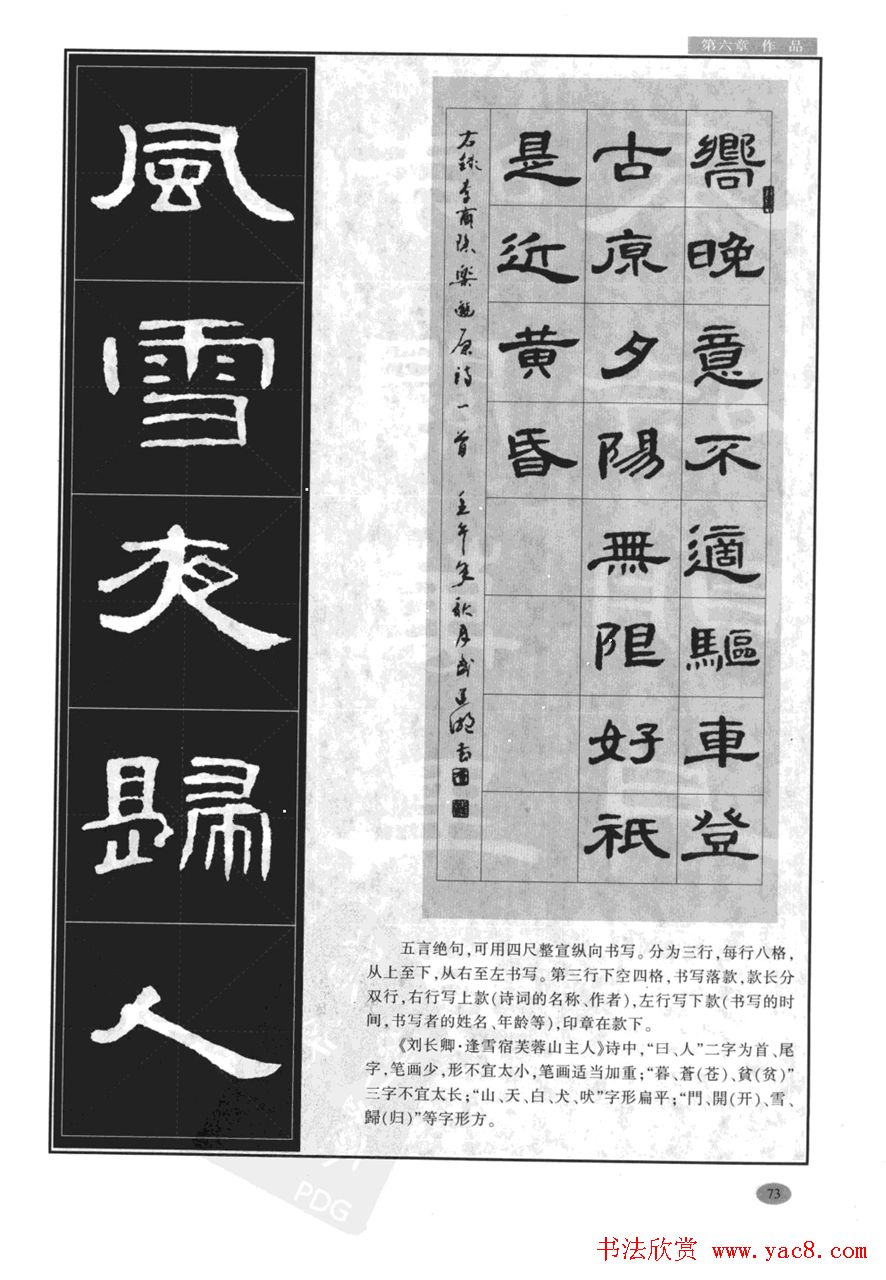 第六章 作 品
嚮晚意不適驅車登
古原夕陽無限好祇
是近黄昏
右録李商隱樂遊原詩一首 壬午年秋月
風雪夜歸人
五言绝句,可用四尺整宣纵向书写。分为三行,每行八格,
从上至下,从右至左书写。第三行下空四格,书写落款,款长分
双行,右行写上款(诗词的名称、作者),左行写下款(书写的时
间,书写者的姓名、年龄等),印章在款下。
《刘长卿·逢雪宿芙蓉山主人》诗中,“日、人”二字为首、尾
字,笔画少,形不宜太小,笔画适当加重;“暮、蒼(苍)、貧(贫)”
三字不宜太长;“山、天、白、犬、吠”字形扁平;“門、開(开)、雪、
歸(归)”等字形方。
73
PDG
书法欣赏 www.yac8.com